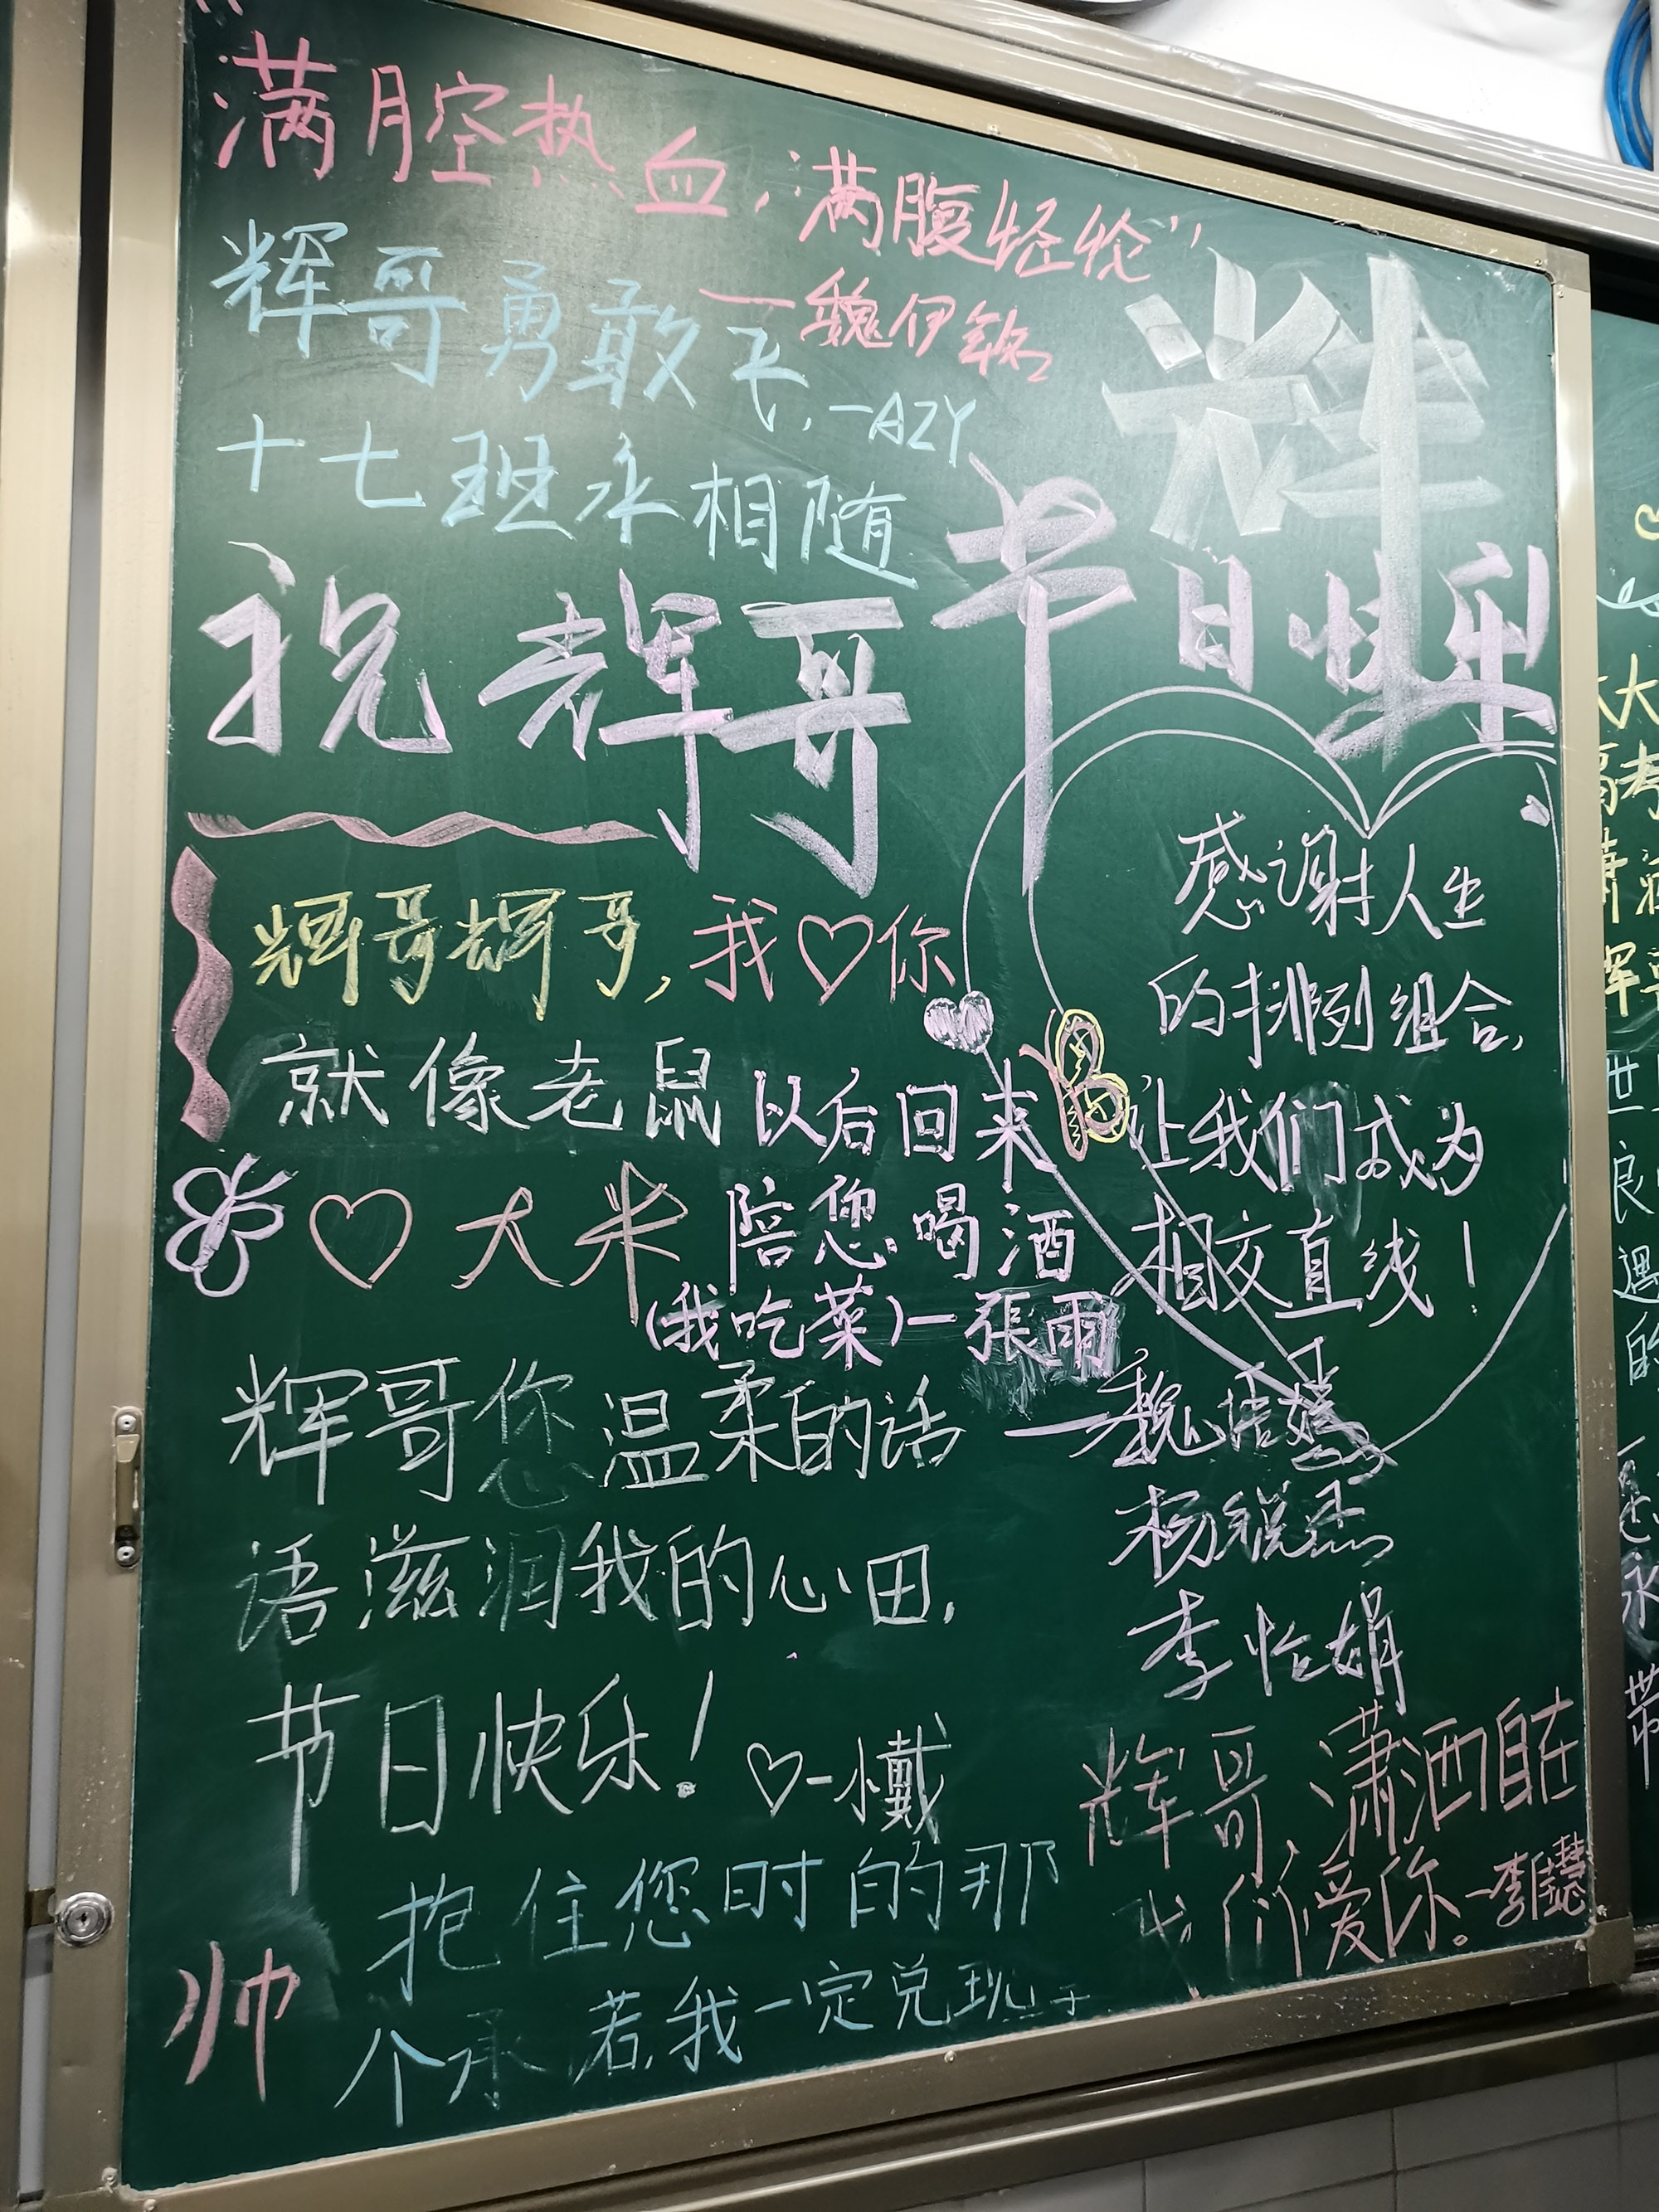 "满腔热血，满腹经纶"
—魏伊铭
辉哥勇敢飞，—AZY
十七班永相随
辉
祝辉哥节日快乐
辉哥辉哥，我♡你
就像老鼠
♡大米
以后回来
陪您喝酒
(我吃菜)—張雨
感谢人生
的排列组合，
让我们成为
相交直线！
—魏
杨锐杰
李怡娟
辉哥您温柔的话
语滋润我的心田，
节日快乐！♡—小戴
抱住您时的那
个承若，我一定兑现
帅
辉哥，潇洒自在
我们爱你。—李